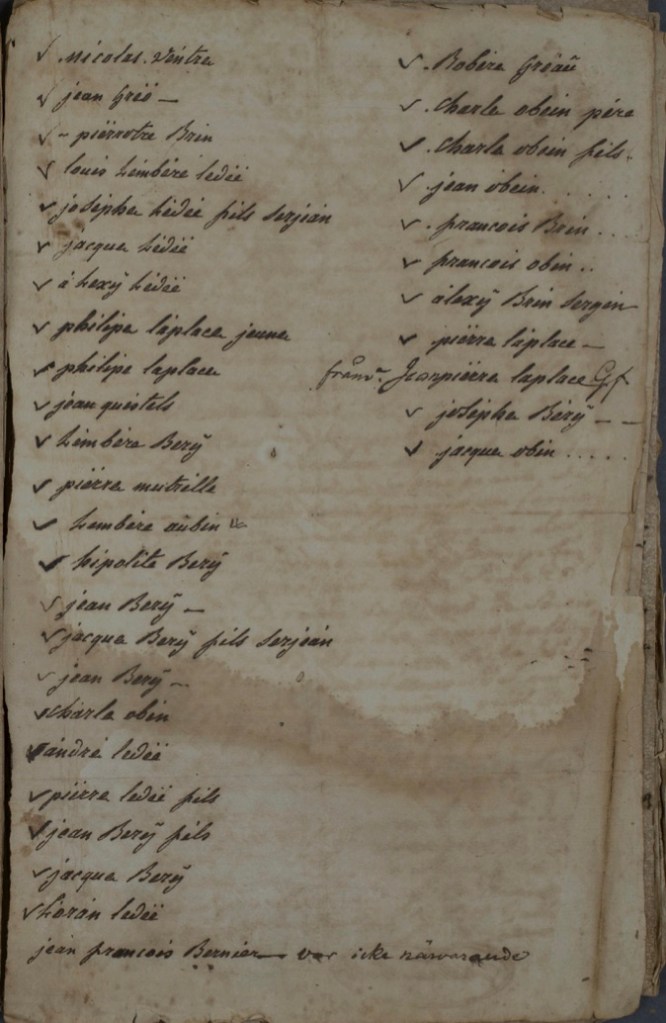 ✓ .nicolas. vintra
✓ jean Gréö —
✓ – piërrotre Brin
✓ louis Limbére ledéé
✓ joséphe Lédéé fils serjeán
✓ jacque Lédéé
✓ á Lexÿ Lédéé
✓ philipe láplace jeune
✓ philipe laplace
✓ jean quistels
✓ Limbére Berÿ
✓ piërra mutrelle
✓ Lembére aubin
✓ hipolite Berÿ
✓ jean Berÿ —
✓ jacque Berÿ fils serjeán
✓ jean Berÿ —
✓ charle obin
✓ ándré ledéé
✓ piërre ledéé fils
✓ jean Berÿ fils
✓ jacque Berÿ
✓ Lorán ledéé
jean francois Bernier — var icke närvarande
✓ . Robére Gréaü
✓ . charle obein pére
✓ . charle obein fils .
✓ . jean obein. . . . . .
✓ . francois Brin . . .
✓ francois obin . .
✓ álexÿ Brin sergin
✓ . piërre láplace —
Jeanpiërre laplace
✓ joséphe Bérÿ — —
✓ jacque obin . . . . .